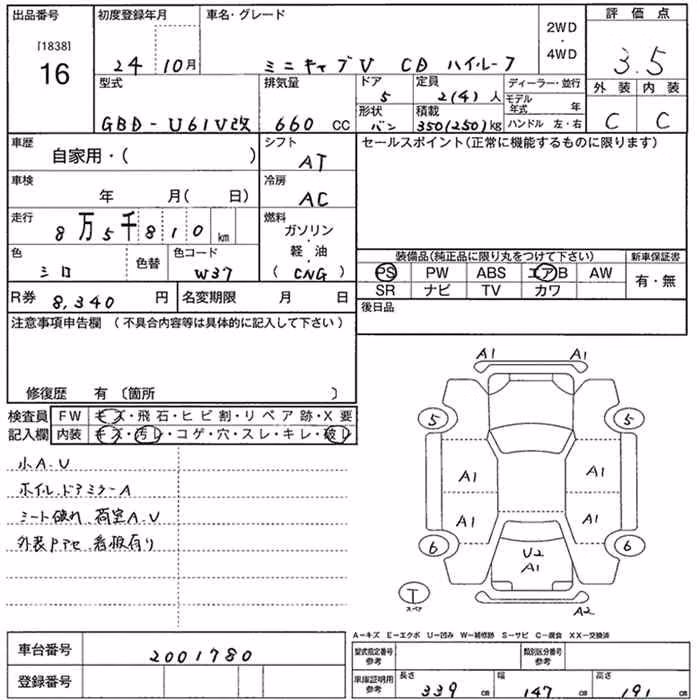 出品番号
[1838]
16
初度登録年月
24 10月
車名・グレード
ミニキャブV CD ハイルーフ
2WD
・
4WD
評価点
3.5
型式
GBD-U61V改
排気量
660 CC
ドア
5
定員
2(4)人
形状
バン
積載
350(250)kg
ディーラー・並行
モデル年式 年
ハンドル 左・右
外装 内装
C C
車歴
自家用・( )
シフト
AT
セールスポイント(正常に機能するものに限ります)
車検
年 月( 日)
冷房
AC
走行
8万5千810 km
燃料
ガソリン
・
軽・油
(CNG)
色
シロ
色替
色コード
W37
装備品(純正品に限り丸をつけて下さい)
新車保証書
PS PW ABS エアB AW
有・無
SR ナビ TV カワ
R券 8,340 円
名変期限 月 日
後日品
注意事項申告欄 (不具合内容等は具体的に記入して下さい)
修復歴 有 〔箇所 〕
検査員
記入欄
FW キズ・飛石・ヒビ割・リペア跡・X要
内装 キズ・汚レ・コゲ・穴・スレ・キレ・破レ
小A.U
ホイル.ドアミラーA
シート破れ 荷室A.U
外装Pアセ 看板有り
A1 A1
5 5
A1 A1
A1 A1
6 6
U2
A1
T
スペア
A2
A-キズ E-エクボ U-凹み W-補修跡 S-サビ C-腐食 XX-交換済
車台番号
2001780
登録番号
型式指定番号
参考
類別区分番号
参考
車庫証明用
参考
長さ
339 cm
幅
147 cm
高さ
191 cm